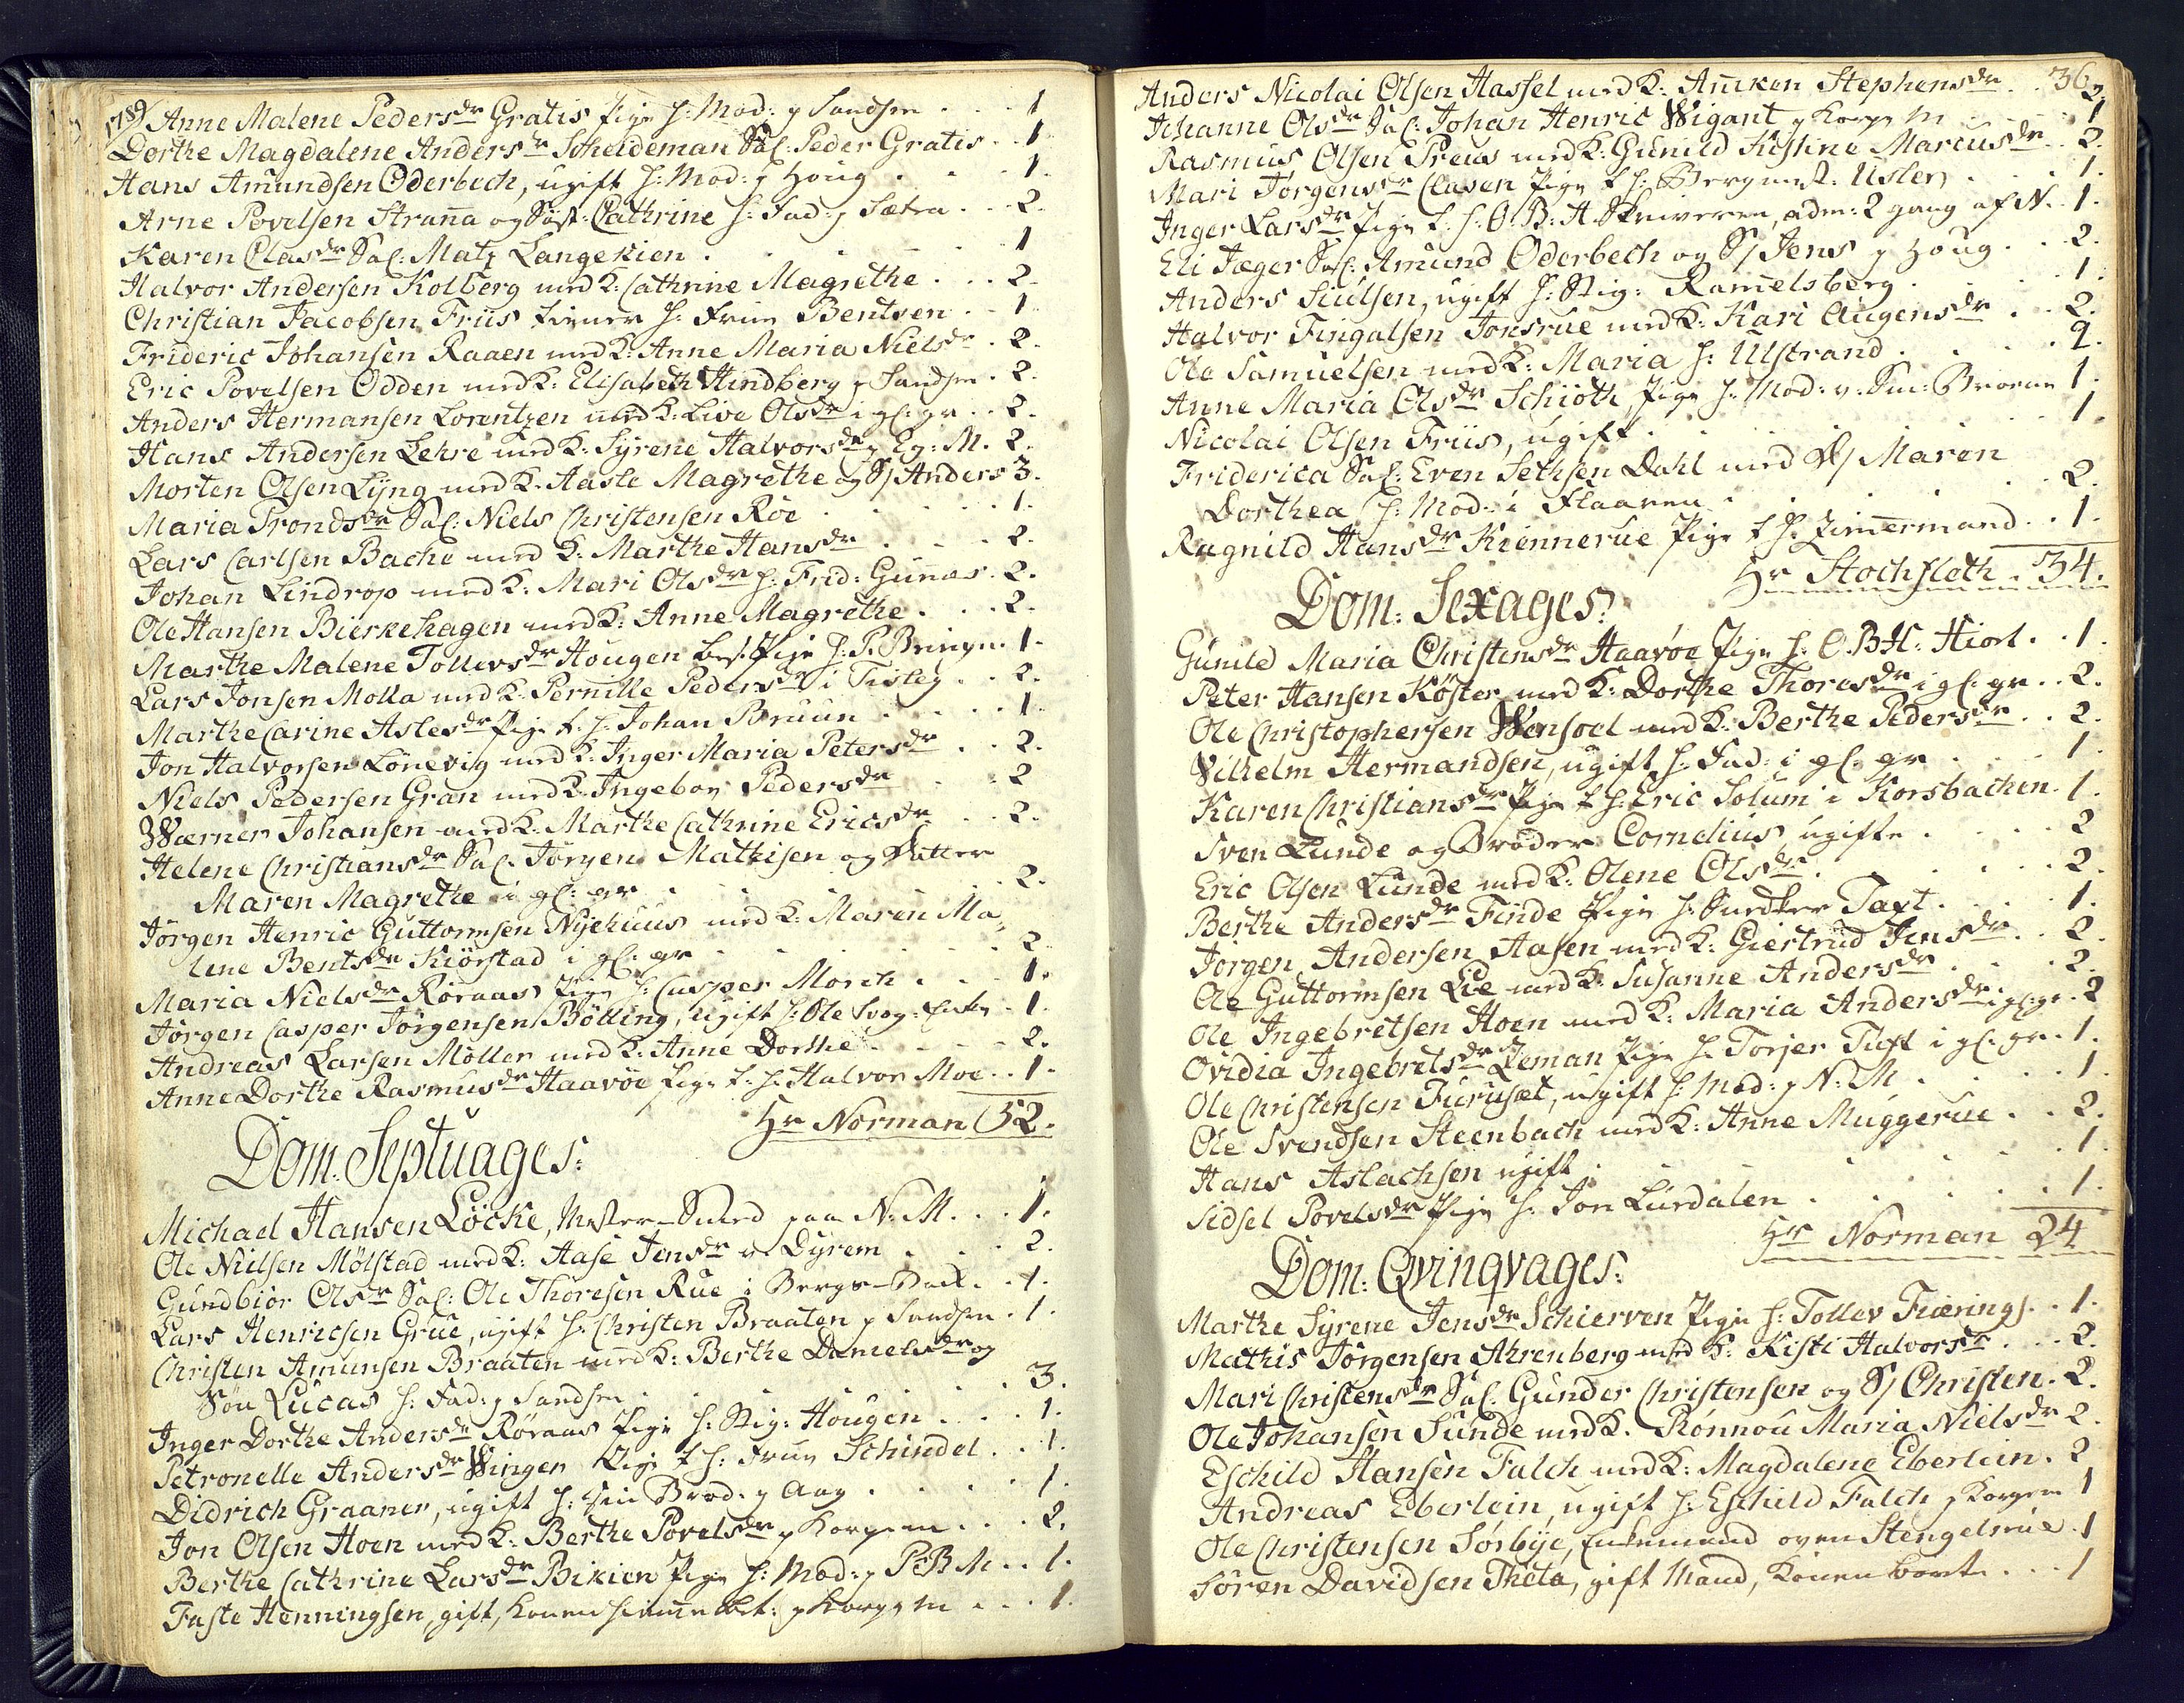 1789 Anne Malene Peders dr Gratis Pige h: Mod: p Sandsv . . . 1
Dorthe Magdalene Anders dr Scheideman Sal: Peder Gratis . . 1
Hans Amundsen Oderbech, ugift h: Mod: p Houg . . . 1.
Arne Povelsen Strana og Søst: Cathrine h: Fad: p Sætra . . . 2.
Karen Clas dr Sal: Matz Langekien . . . 1
Halvor Andersen Kolberg med K: Cathrine Magrethe . . . 2.
Christian Jacobsen Friis tiener h: Frue Bentsen . . 1
Frideric Johansen Raaen med K: Anne Maria Niels dr . 2.
Eric Povelsen Odden med K: Elisabeth Hindberg p Sandsv . 2.
Anders Hermansen Lorentzen med K: Live Ols dr i gl: gr . . 2.
Hans Andersen Lehre med K: Syrene Halvors dr p Eg: M. 2.
Morten Olsen Lyng med K. Aasle Magrethe og S/ Anders 3.
Maria Tronds dr Sal: Niels Christensen Röe . . . 1.
Lars Carlsen Bache med K: Marthe Hans dr . . . 2.
Johan Lindrop med K: Mari Ols dr h: Frid: Gunæs . 2.
Ole Hansen Bierkehagen med K: Anne Magrethe . . . 2.
Marthe Malene Tollevs dr Hougen bes: Pige h: P. Bringe . 1.
Lars Jonsen Molla med K: Pernille Peders dr i Tisleg . . 2.
Marthe Carine Asles dr Pige t. h: Johan Bruun . . . 1.
Jon Halvorsen Lönevig med K: Inger Maria Peters dr . . 2.
Niels Pedersen Gran med K: Ingebor Peders dr . . 2
Wærner Johansen med K: Marthe Cathrine Erics dr . . 2.
Helene Christians dr Sal: Jörgen Mathisen og Datter
Maren Magrethe i gl: gr . . . 2.
Jörgen Henric Guttormsen Nyehuus med K: Maren Ma,
lene Bents dr Kiörstad i gl: gr . . . 2
Maria Niels dr Röraas Pige h: Casper Morch . . . 1.
Jörgen Casper Jörgensen Bölling, ugift h: Ole Svog: Enke . 1.
Andreas Larsen Möller med K: Anne Dorthe . . . 2.
Anne Dorthe Rasmus dr Haavöe Pige t. h. Halvor Moe . . 1.
Hr Norman 52.
Dom: Septuages:
Michael Hansen Löcke, Mester-Smed paa N: M. . . 1.
Ole Nielsen Mölstad med K: Aase Jens dr v Dyrem . . . 2.
Gundbiör Ols dr Sal: Ole Thoresen Rue i Bergs-Bak . . 1.
Lars Henricsen Grue, ugift h: Christen Braaten p Sandsv . 1.
Christen Amunsen Braaten med K: Berthe Daniels dr og
Sön Lucas h: Fad: p Sandsv . . . 3.
Inger Dorthe Anders dr Röraas Pige h: Stig: Hougen . . . 1.
Petronelle Anders dr Winger Pige t h: Frue Schindel . . 1.
Didrich Graaner, ugift h: sin Brod: p Aas . . . 1.
Jon Olsen Hoen med K: Berthe Povels dr p Korge m . . . 2.
Berthe Cathrine Lars dr Bikien Pige h: Mod: p P:B: M . . 1.
Faste Henningsen, gift, Konen hiemme Bet: p Korge m . . . 1.
36
Anders Nicolai Olsen Hassel med K: Aniken Stephens dr . . 2
Johanne Ols dr Sal: Johan Henric Wigant p Korge M . . . 1
Rasmus Olsen Preus med K: Gunild Kistine Marcus dr . . 2.
Mari Jörgens dr Clasen Pige t h: Bergmest: Usler . . . 1.
Inger Lars dr Pige t. h: O: B: A. Skriveren, adm: 2 gang af N. . 1.
Eli Jæger Sal: Amund Oderbech og S/ Jens p Houg . . . 2.
Anders Juulsen, ugift h: Stig: Ramelsberg . . . 1.
Halvor Fingalsen Jonsrue med K: Kari Augens dr . . . 2.
Ole Samuelsen med K: Maria h: Ulstrand . . . 2.
Anne Maria Ols dr Schiöth, Pige h: Mod: v: Sm: Broene 1.
Nicolai Olsen Friis, ugift . . . 1
Friderica Sal: Even Sethsen Dahl med D/ Maren
Dorthea h: Mod: i Flaaren . . . 2.
Ragnild Hans dr Kiennerue Pige t h: Zimermand . . 1.
Hr Stochfleth . 34.
Dom: Sexages:
Gunild Maria Christens dr Haavöe Pige h: O.B.H: Hiort . . 1.
Peter Hansen Köster med K: Dorthe Thores dr i gl: gr . . 2.
Ole Christophersen Wensoel med K: Berthe Peders dr . . 2.
Vilhelm Hermandsen, ugift h: Fad: i gl: gr . . . 1.
Karen Christians dr Pige t h: Eric Solum i Korsbachen . 1.
Sven Lunde og Broder Cornelius ugifte . . . 2
Eric Olsen Lunde med K: Olene Ols dr . . . 2.
Berthe Anders dr Finde Pige h: Snedker Taxt . . . 1.
Jörgen Andersen Aasen med K: Giertrud Jens dr . . . 2.
Ole Guttormsen Lie med K: Susanne Anders dr . . . 2.
Ole Ingebretsen Hoen med K: Maria Anders dr i gl: gr . 2
Ovidia Ingebrets dr Zeman Pige h: Torjer Tuft i gl: gr . 1.
Ole Christensen Furuset, ugift h: Mod: p N: M . . . 1
Ole Svendsen Steenbach med K: Anne Muggerue . . . 2.
Hans Aslachsen ugift . . . 1
Sidsel Povels dr Pige h: Jon Lurdalen . . . 1.
Hr Norman 24
Dom: Qvinqvages:
Marthe Syrene Jens dr Schierven Pige h: Tollev Fiærings . . 1.
Mathis Jörgensen Ahrenberg med K: Kisti Halvors dr . . . 2.
Mari Christens dr Sal: Gunder Christensen og S/ Christen . 2.
Ole Johansen Sunde med K: Rönnou Maria Niels dr 2.
Eschild Hansen Falch med K: Magdalene Eberlein . 2
Andreas Eberlein, ugift h: Eschild Falch p Korgem 1
Ole Christensen Sörbÿe, Enkemand oven Stengelsrue . 1
Sören Davidsen Theta, gift Mand, Konen borte . . . 1